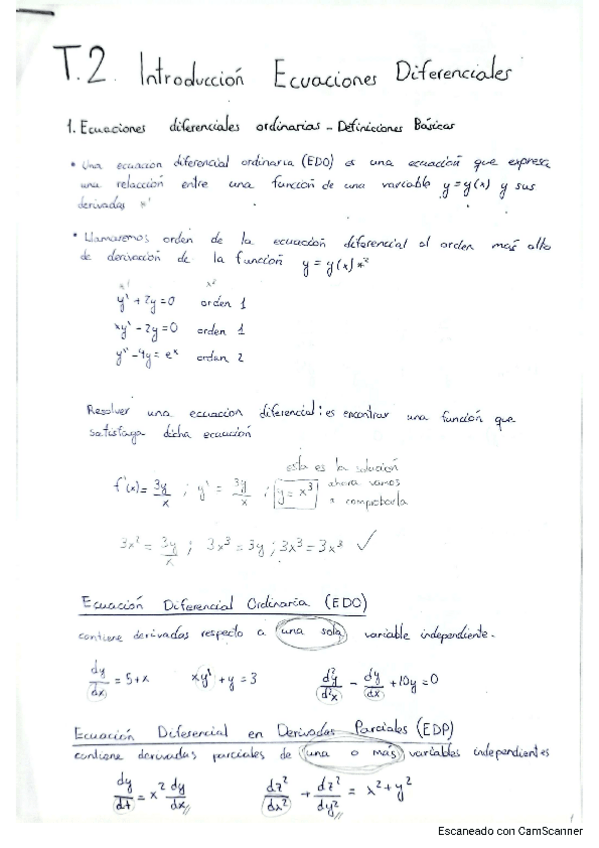 T.2. Introducción Ecuaciones Diferenciales
1. Ecuaciones diferenciales ordinarias - Definiciones Básicas
• Una ecuacion diferencial ordinaria (EDO) es una ecuación que expresa
una relacción entre una función de una variable y=y(x) y sus
derivadas *¹
• Llamaremos orden de la ecuacción diferencial al orden mas alto
de derivación de la función y = y(x) *²
x¹ x²
y' + 2y = 0 orden 1
xy' - 2y = 0 orden 1
y'' - 4y = eˣ orden 2
Resolver una ecuacion diferencial: es encontrar una función que
satisfaga dicha ecuación
esta es la solución
f'(x) = 3y/x ; y' = 3y/x ; y = x³ ahora vamos
a comprobarla
3x² = 3y/x ; 3x³ = 3y ; 3x³ = 3x³ ✓
Ecuación Diferencial Ordinaria (EDO)
contiene derivadas respecto a una sola variable independiente.
dy/dx = 5+x xy' + y = 3 d²y/d²x - dy/dx + 10y = 0
Ecuación Diferencial en Derivadas Parciales (EDP)
contiene derivadas parciales de una o más variables independientes
dy/dt = x² dy/dx // dz²/dx² + dz²/dy² // = x² + y²
1
Escaneado con CamScanner